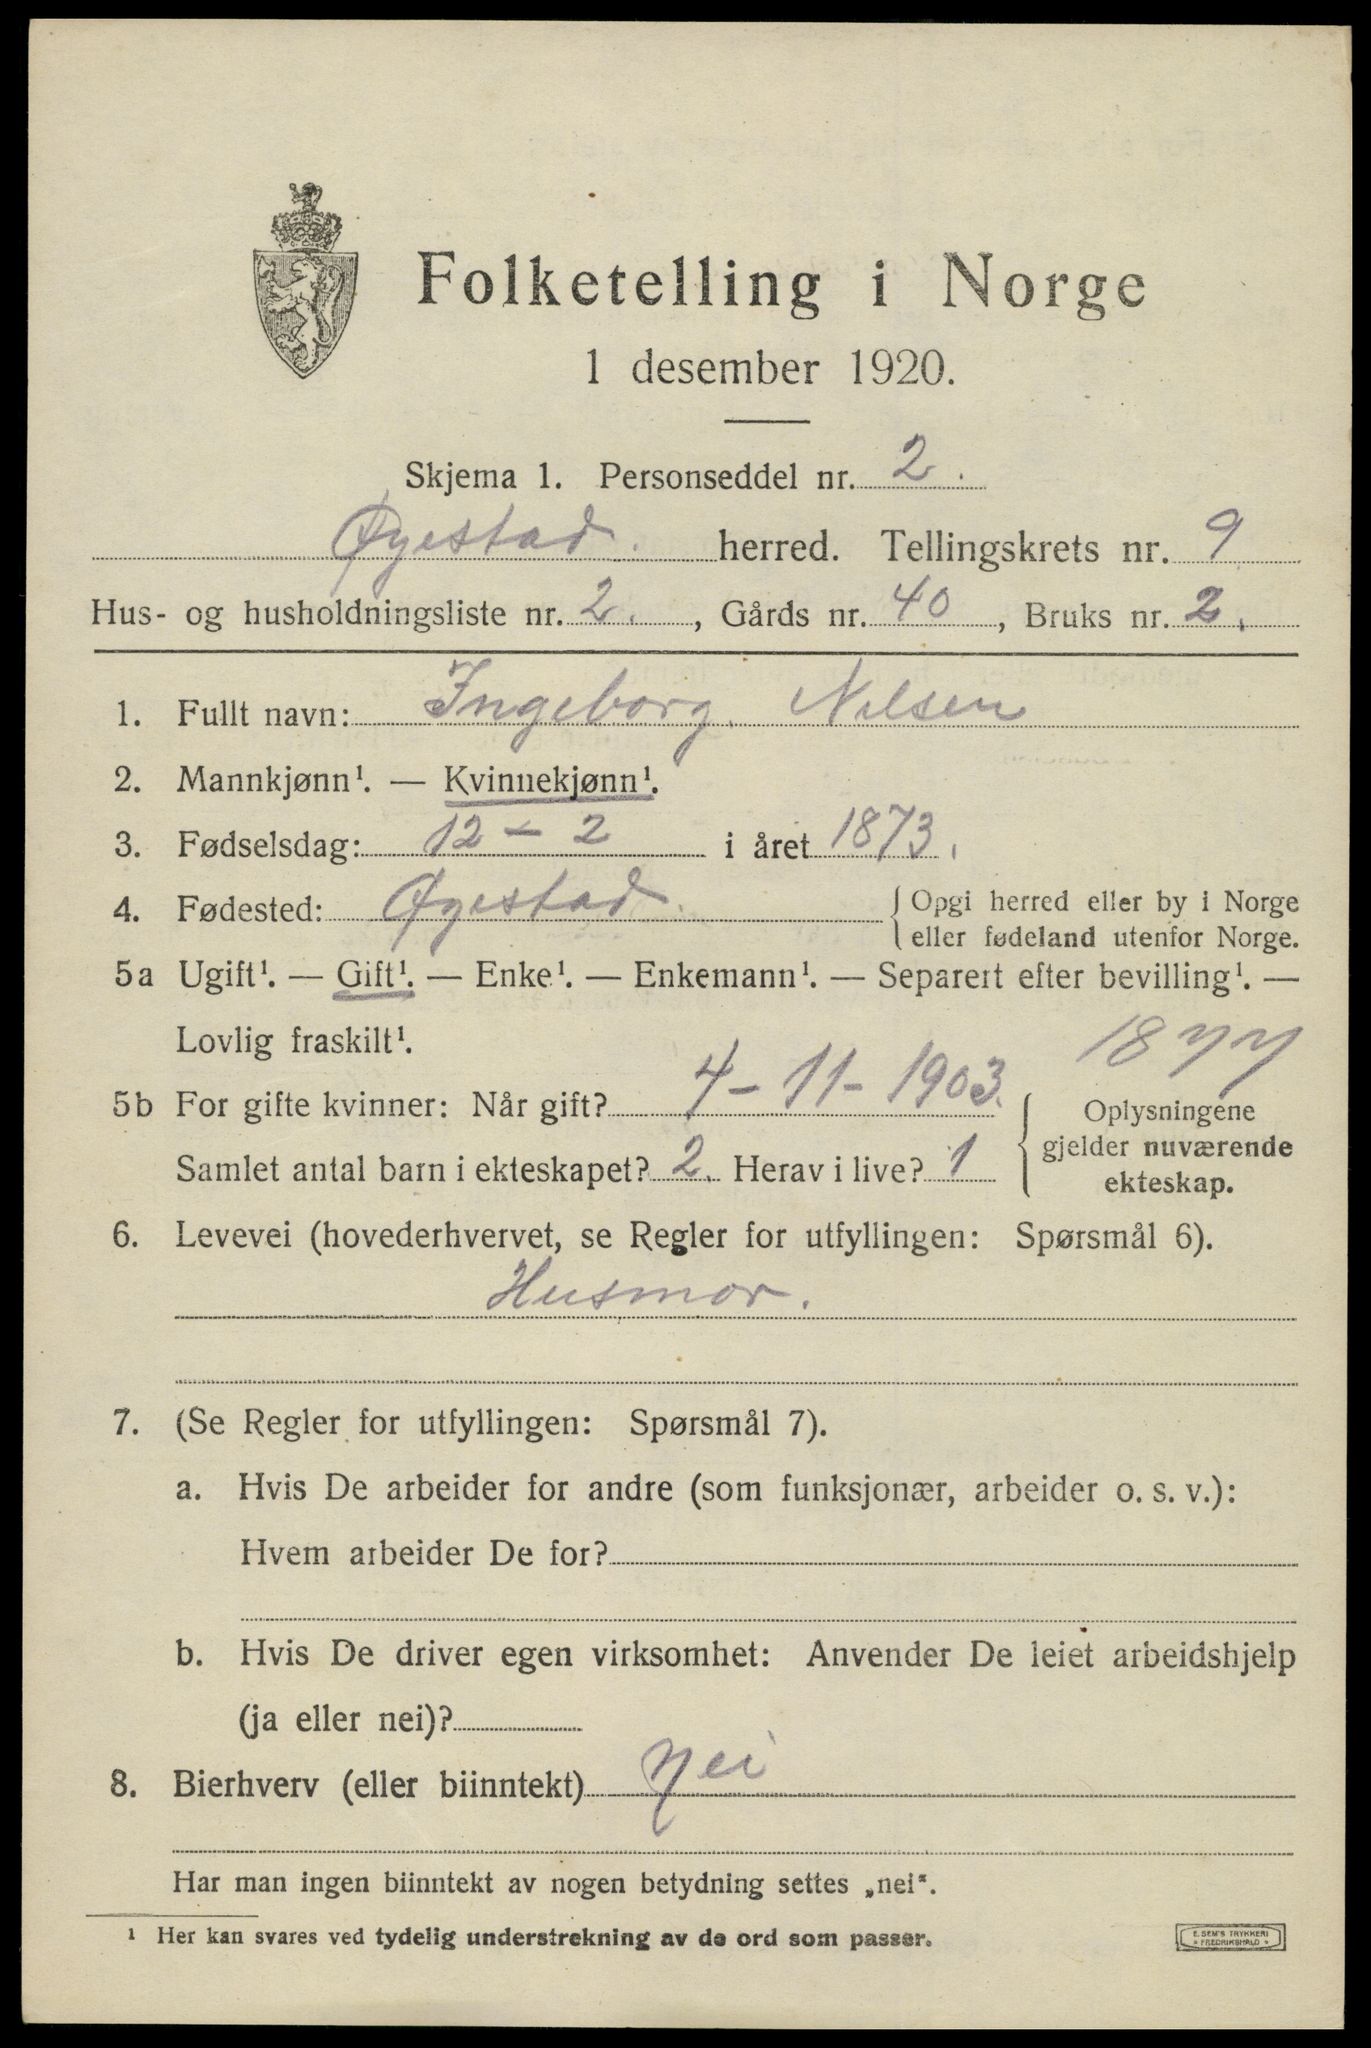 Folketelling i Norge
1 desember 1920.
Skjema 1. Personseddel nr. 2.
Øyestad. herred. Tellingskrets nr. 9
Hus- og husholdningsliste nr. 2., Gårds nr. 40, Bruks nr. 2.
1. Fullt navn: Ingeborg. Nelsen
2. Mannkjønn¹. — Kvinnekjønn¹.
3. Fødselsdag: 12 – 2 i året 1873.
4. Fødested: Øyestad. { Opgi herred eller by i Norge
eller fødeland utenfor Norge.
5a Ugift¹. — Gift¹. — Enke¹. — Enkemann¹. — Separert efter bevilling¹. —
Lovlig fraskilt¹.
18 77
5b For gifte kvinner: Når gift? 4-11-1903.
Samlet antal barn i ekteskapet? 2. Herav i live? 1
{ Oplysningene
gjelder nuværende
ekteskap.
6. Levevei (hovederhvervet, se Regler for utfyllingen: Spørsmål 6).
Husmor.
7. (Se Regler for utfyllingen: Spørsmål 7).
a. Hvis De arbeider for andre (som funksjonær, arbeider o. s. v.):
Hvem arbeider De for?
b. Hvis De driver egen virksomhet: Anvender De leiet arbeidshjelp
(ja eller nei)?
8. Bierhverv (eller biinntekt) nei
Har man ingen biinntekt av nogen betydning settes „nei".
¹ Her kan svares ved tydelig understrekning av de ord som passer.
E. SEM'S TRYKKERI
* FREDRIKSHALD *